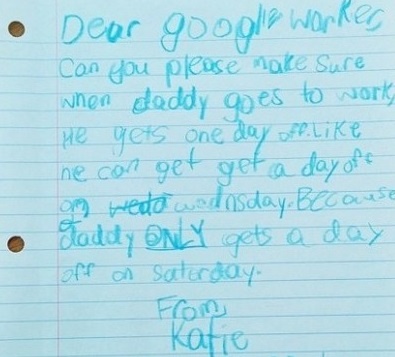 Dear google worker
Can you please make sure
when daddy goes to work,
He gets one day off. Like
he can get get a day off
on wedo wednsday. Because
daddy ONLY gets a day
off on saterday.
From,
Katie